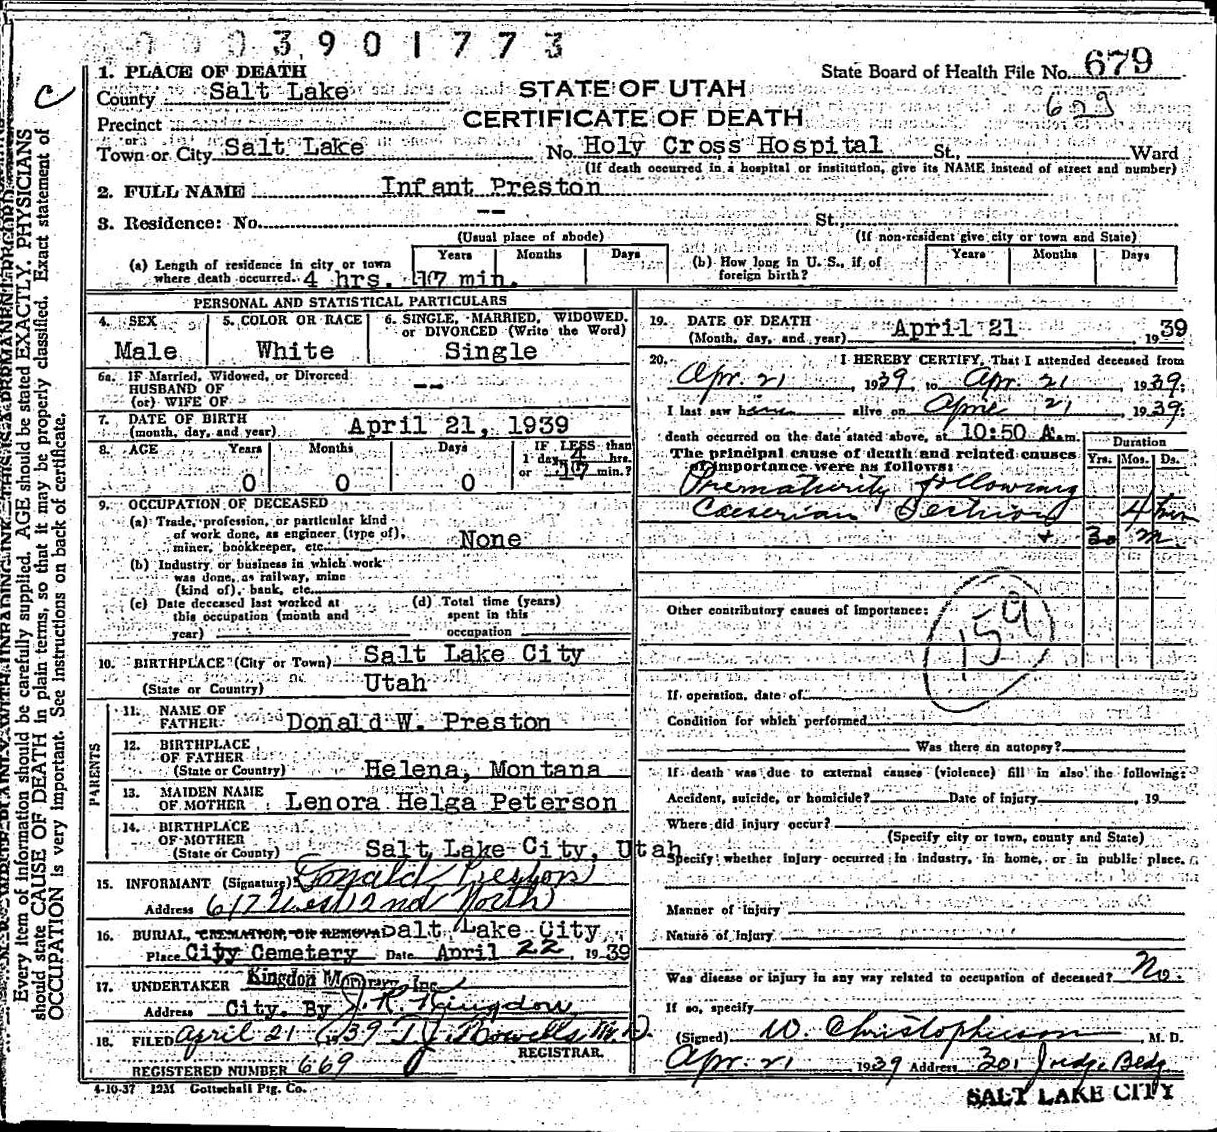 0003901773
C
State Board of Health File No. 679
629
STATE OF UTAH
CERTIFICATE OF DEATH
1. PLACE OF DEATH
County Salt Lake
Precinct
or
Town or City Salt Lake No. Holy Cross Hospital St., Ward
(If death occurred in a hospital or institution, give its NAME instead of street and number)
2. FULL NAME Infant Preston
3. Residence: No. -- St.
(Usual place of abode) (If non-resident give city or town and State)
(a) Length of residence in city or town where death occurred. 4 hrs. 17 min.
Years Months Days
(b) How long in U. S., if of foreign birth?
Years Months Days
PERSONAL AND STATISTICAL PARTICULARS
4. SEX Male
5. COLOR OR RACE White
6. SINGLE, MARRIED, WIDOWED, or DIVORCED (Write the Word) Single
6a. IF Married, Widowed, or Divorced
HUSBAND OF
(or) WIFE OF --
7. DATE OF BIRTH
(month, day, and year) April 21, 1939
8. AGE Years 0 Months 0 Days 0
IF LESS than
1 day, 4 hrs.
or 17 min.?
9. OCCUPATION OF DECEASED
(a) Trade, profession, or particular kind
of work done, as engineer (type of),
miner, bookkeeper, etc. None
(b) Industry or business in which work
was done, as railway, mine
(kind of), bank, etc.
(c) Date deceased last worked at
this occupation (month and
year)
(d) Total time (years)
spent in this
occupation
10. BIRTHPLACE (City or Town) Salt Lake City
(State or Country) Utah
PARENTS
11. NAME OF
FATHER Donald W. Preston
12. BIRTHPLACE
OF FATHER
(State or Country) Helena, Montana
13. MAIDEN NAME
OF MOTHER Lenora Helga Peterson
14. BIRTHPLACE
OF MOTHER
(State or County) Salt Lake City, Utah
15. INFORMANT (Signature) Donald Preston
Address 617 West 2nd North
16. BURIAL, CREMATION, OR REMOVAL Salt Lake City
Place City Cemetery Date April 22, 1939
17. UNDERTAKER Kingdon Mortuary Inc
Address City. By J. R. Kingdon
18. FILED April 21 1939 T. J. Howells M. D.
REGISTRAR.
REGISTERED NUMBER 669
4-10-37 1231 Gottschall Ptg. Co.
19. DATE OF DEATH
(Month, day, and year) April 21 1939
20. I HEREBY CERTIFY, That I attended deceased from
Apr. 21, 1939, to Apr. 21 1939;
I last saw him alive on April 21 1939;
death occurred on the date stated above, at 10:50 A.m.
The principal cause of death and related causes
of importance were as follows:
Duration
Yrs. Mos. Ds.
Prematurity following
Caeserian Section 4 hrs
+ 30 m
Other contributory causes of importance:
159
If operation, date of
Condition for which performed
Was there an autopsy?
If death was due to external causes (violence) fill in also the following:
Accident, suicide, or homicide? Date of injury , 19
Where did injury occur?
(Specify city or town, county and State)
Specify whether injury occurred in industry, in home, or in public place.
Manner of injury
Nature of injury
Was disease or injury in any way related to occupation of deceased? No.
If so, specify
(Signed) W. Christopherson, M. D.
Apr. 21 1939 Address 301 Judge Bldg
SALT LAKE CITY
Every item of information should be carefully supplied. AGE should be stated EXACTLY. PHYSICIANS
should state CAUSE OF DEATH in plain terms, so that it may be properly classified. Exact statement of
OCCUPATION is very important. See instructions on back of certificate.